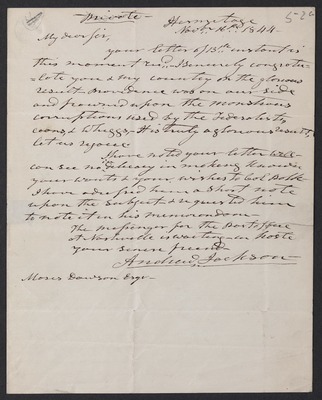 Private—
5-26
Hermitage
Novr. 16th. 1844—
My dear Sir,
your letter of 13th instant is
this moment recd, I sincerely congratu-
-late you & my country on the glorious
result Providence was on our side
and frowned upon the monstrous
corruptions used by the Federalists
coons, & Whiggs— It is truly a glorious result,
let us rejoice
I have noted your letter
can see no delicacy in making known
your wants & your wishes to Col Polk
I have addressed him a short note
upon the subject & requested him
to note it in his memorandom—
The messenger for the Post office
at Nashville is waiting— in haste
your sincere friend
Andrew Jackson—
Moses Dawson Esqr—